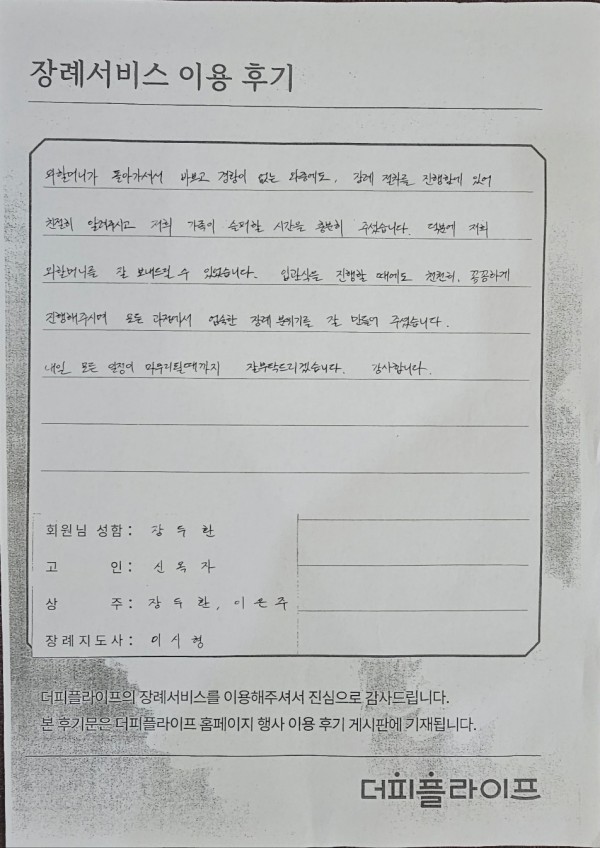 장례서비스 이용 후기
외할머니가 돌아가셔서 바쁘고 경황이 없는 와중에도, 장례 절차를 진행함에 있어
친절히 알려주시고 저희 가족이 슬퍼할 시간을 충분히 주셨습니다. 덕분에 저희
외할머니를 잘 보내드릴 수 있었습니다. 입관식을 진행할 때에도 천천히, 꼼꼼하게
진행해주시며 모든 과정에서 엄숙한 장례 분위기를 잘 만들어 주셨습니다.
내일 모든 일정이 마무리될때까지 잘부탁드리겠습니다. 감사합니다.
회원님 성함: 장두환
고 인: 신옥자
상 주: 장두환, 이은주
장례지도사: 이시형
더피플라이프의 장례서비스를 이용해주셔서 진심으로 감사드립니다.
본 후기문은 더피플라이프 홈페이지 행사 이용 후기 게시판에 기재됩니다.
더피플라이프